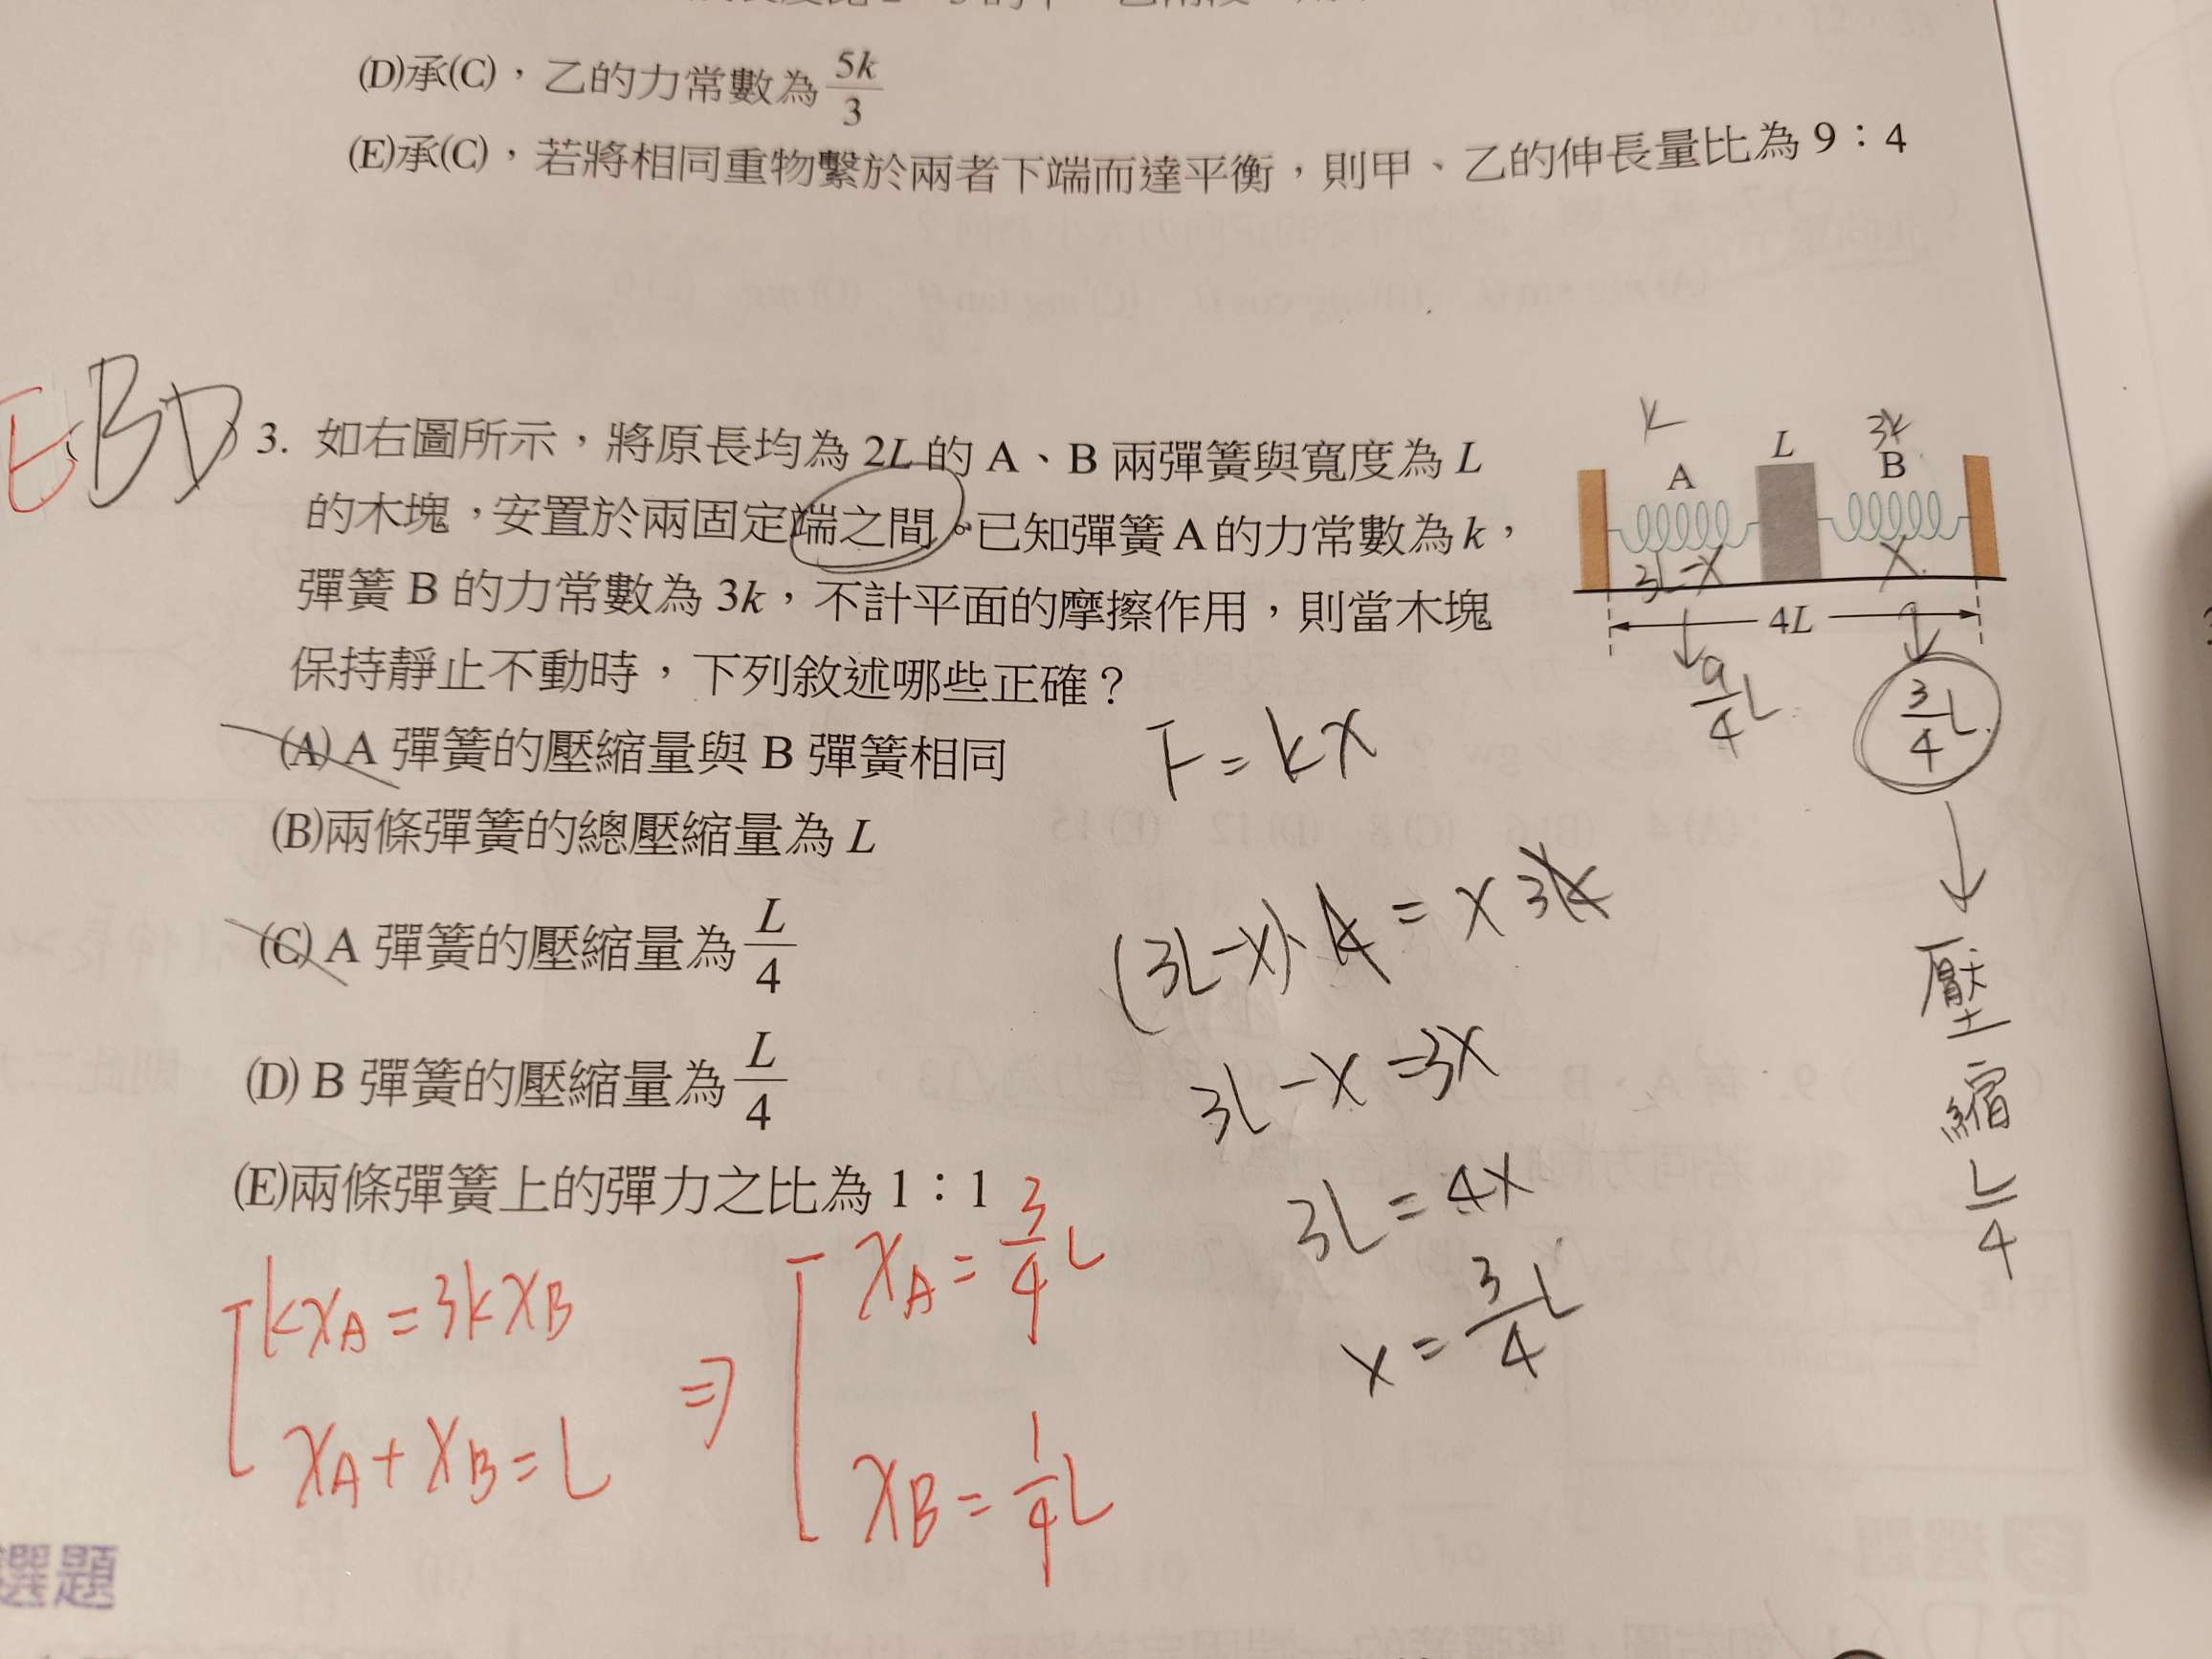 (D)承(C),乙的力常數為 5k/3
(E)承(C),若將相同重物繫於兩者下端而達平衡,則甲、乙的伸長量比為 9:4
EBD
3. 如右圖所示,將原長均為 2L 的 A、B 兩彈簧與寬度為 L
的木塊,安置於兩固定端之間。已知彈簧A的力常數為k,
彈簧 B 的力常數為 3k,不計平面的摩擦作用,則當木塊
保持靜止不動時,下列敘述哪些正確?
k
3k
A
L
B
3L-x
x
4L
9/4 L
3/4 L
壓縮 L/4
(A) A 彈簧的壓縮量與 B 彈簧相同
(B)兩條彈簧的總壓縮量為 L
(C) A 彈簧的壓縮量為 L/4
(D) B 彈簧的壓縮量為 L/4
(E)兩條彈簧上的彈力之比為 1:1
F=kx
(3L-x)·k=x3k
3L-x=3x
3L=4x
x=3/4 L
kxA=3kxB
xA+xB=L
⇒
xA=3/4 L
xB=1/4 L
選題